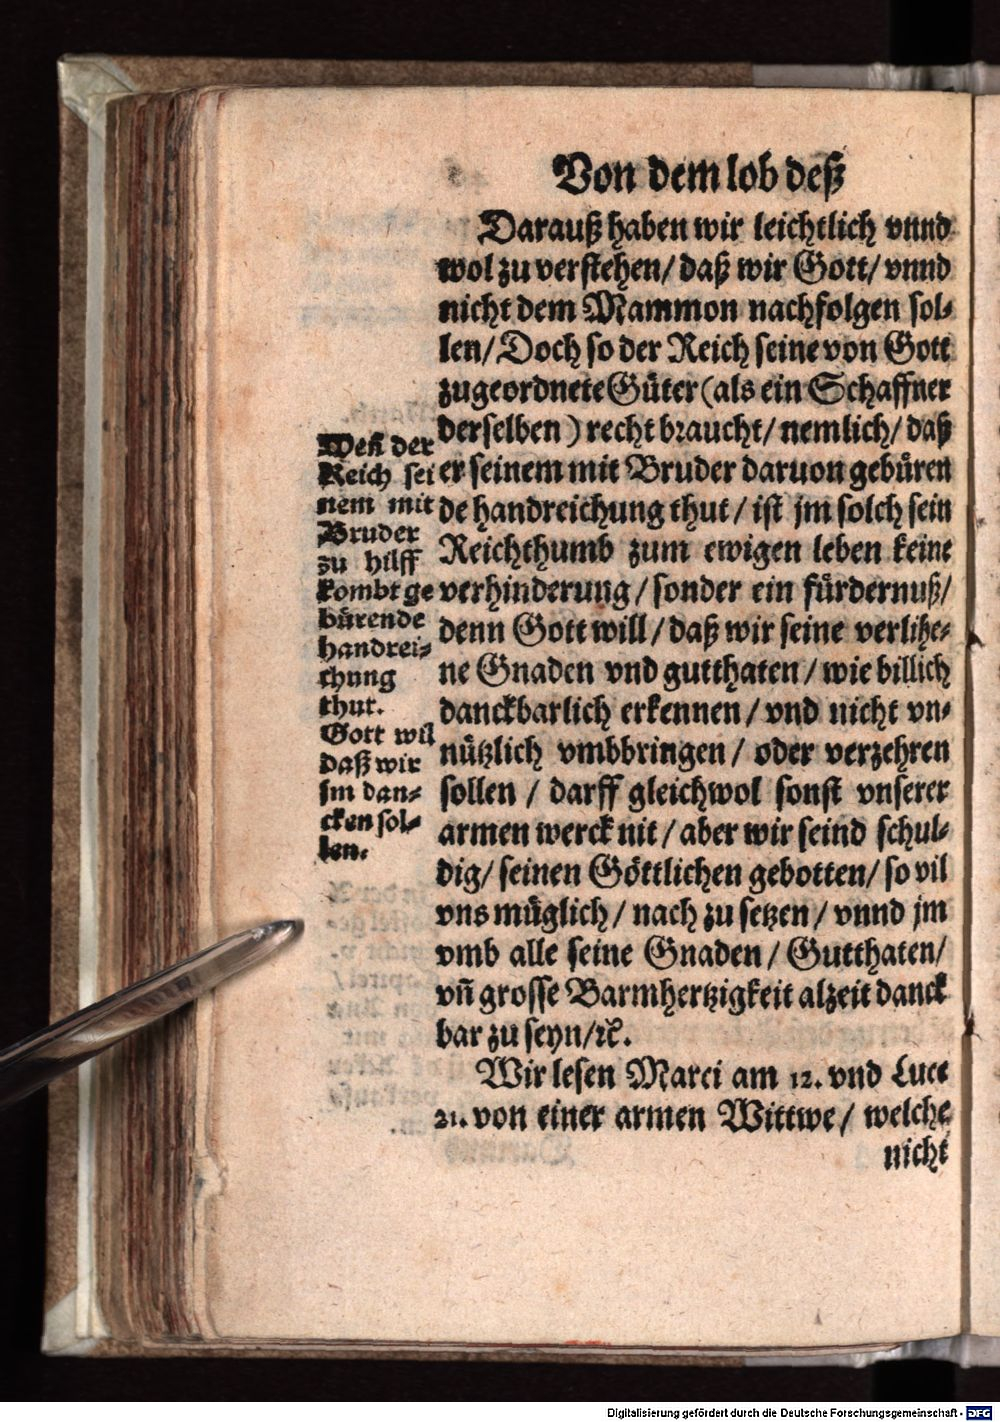 Von dem lob deß
Darauß haben wir leichtlich vnnd
wol zu verstehen/ daß wir Gott/ vnnd
nicht dem Mammon nachfolgen sol-
len/ Doch so der Reich seine von Gott
zugeordnete Güter (als ein Schaffner
derselben) recht braucht/ nemlich/ daß
er seinem mit Bruder daruon gebüren
de handreichung thut/ ist jm solch sein
Reichthumb zum ewigen leben keine
verhinderung/ sonder ein fürdernuß/
denn Gott will/ daß wir seine verlihe-
ne Gnaden vnd gutthaten/ wie billich
danckbarlich erkennen/ vnd nicht vn-
nützlich vmbbringen/ oder verzehren
sollen/ darff gleichwol sonst vnserer
armen werck nit/ aber wir seind schul-
dig/ seinen Göttlichen gebotten/ so vil
vns müglich/ nach zu setzen/ vnnd jm
vmb alle seine Gnaden/ Gutthaten/
vñ grosse Barmhertzigkeit alzeit danck
bar zu seyn/ ꝛc̃.
Wir lesen Marci am 12. vnd Luce
21. von einer armen Wittwe/ welche
nicht
Weñ der
Reich sei
nem mit
Bruder
zu hilff
kombt ge
bürende
handrei-
chung
thut.
Gott wil
daß wir
jm dan-
cken sol-
len.
Digitalisierung gefördert durch die Deutsche Forschungsgemeinschaft - DFG